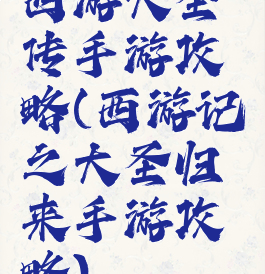 西游大圣
传手游攻
略(西游记
之大圣归
来手游攻
略)